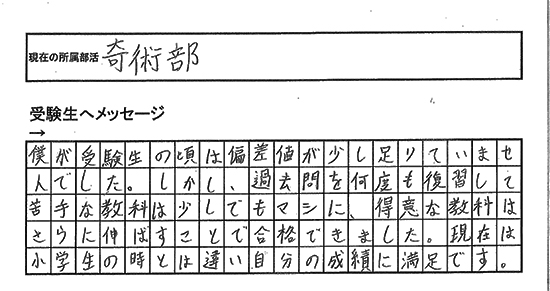 現在の所属部活 奇術部
受験生へメッセージ
→
僕が受験生の頃は偏差値が少し足りていませ
んでした。しかし、過去問を何度も復習して
苦手な教科は少しでもマシに、得意な教科は
さらに伸ばすことで合格できました。現在は
小学生の時とは違い自分の成績に満足です。